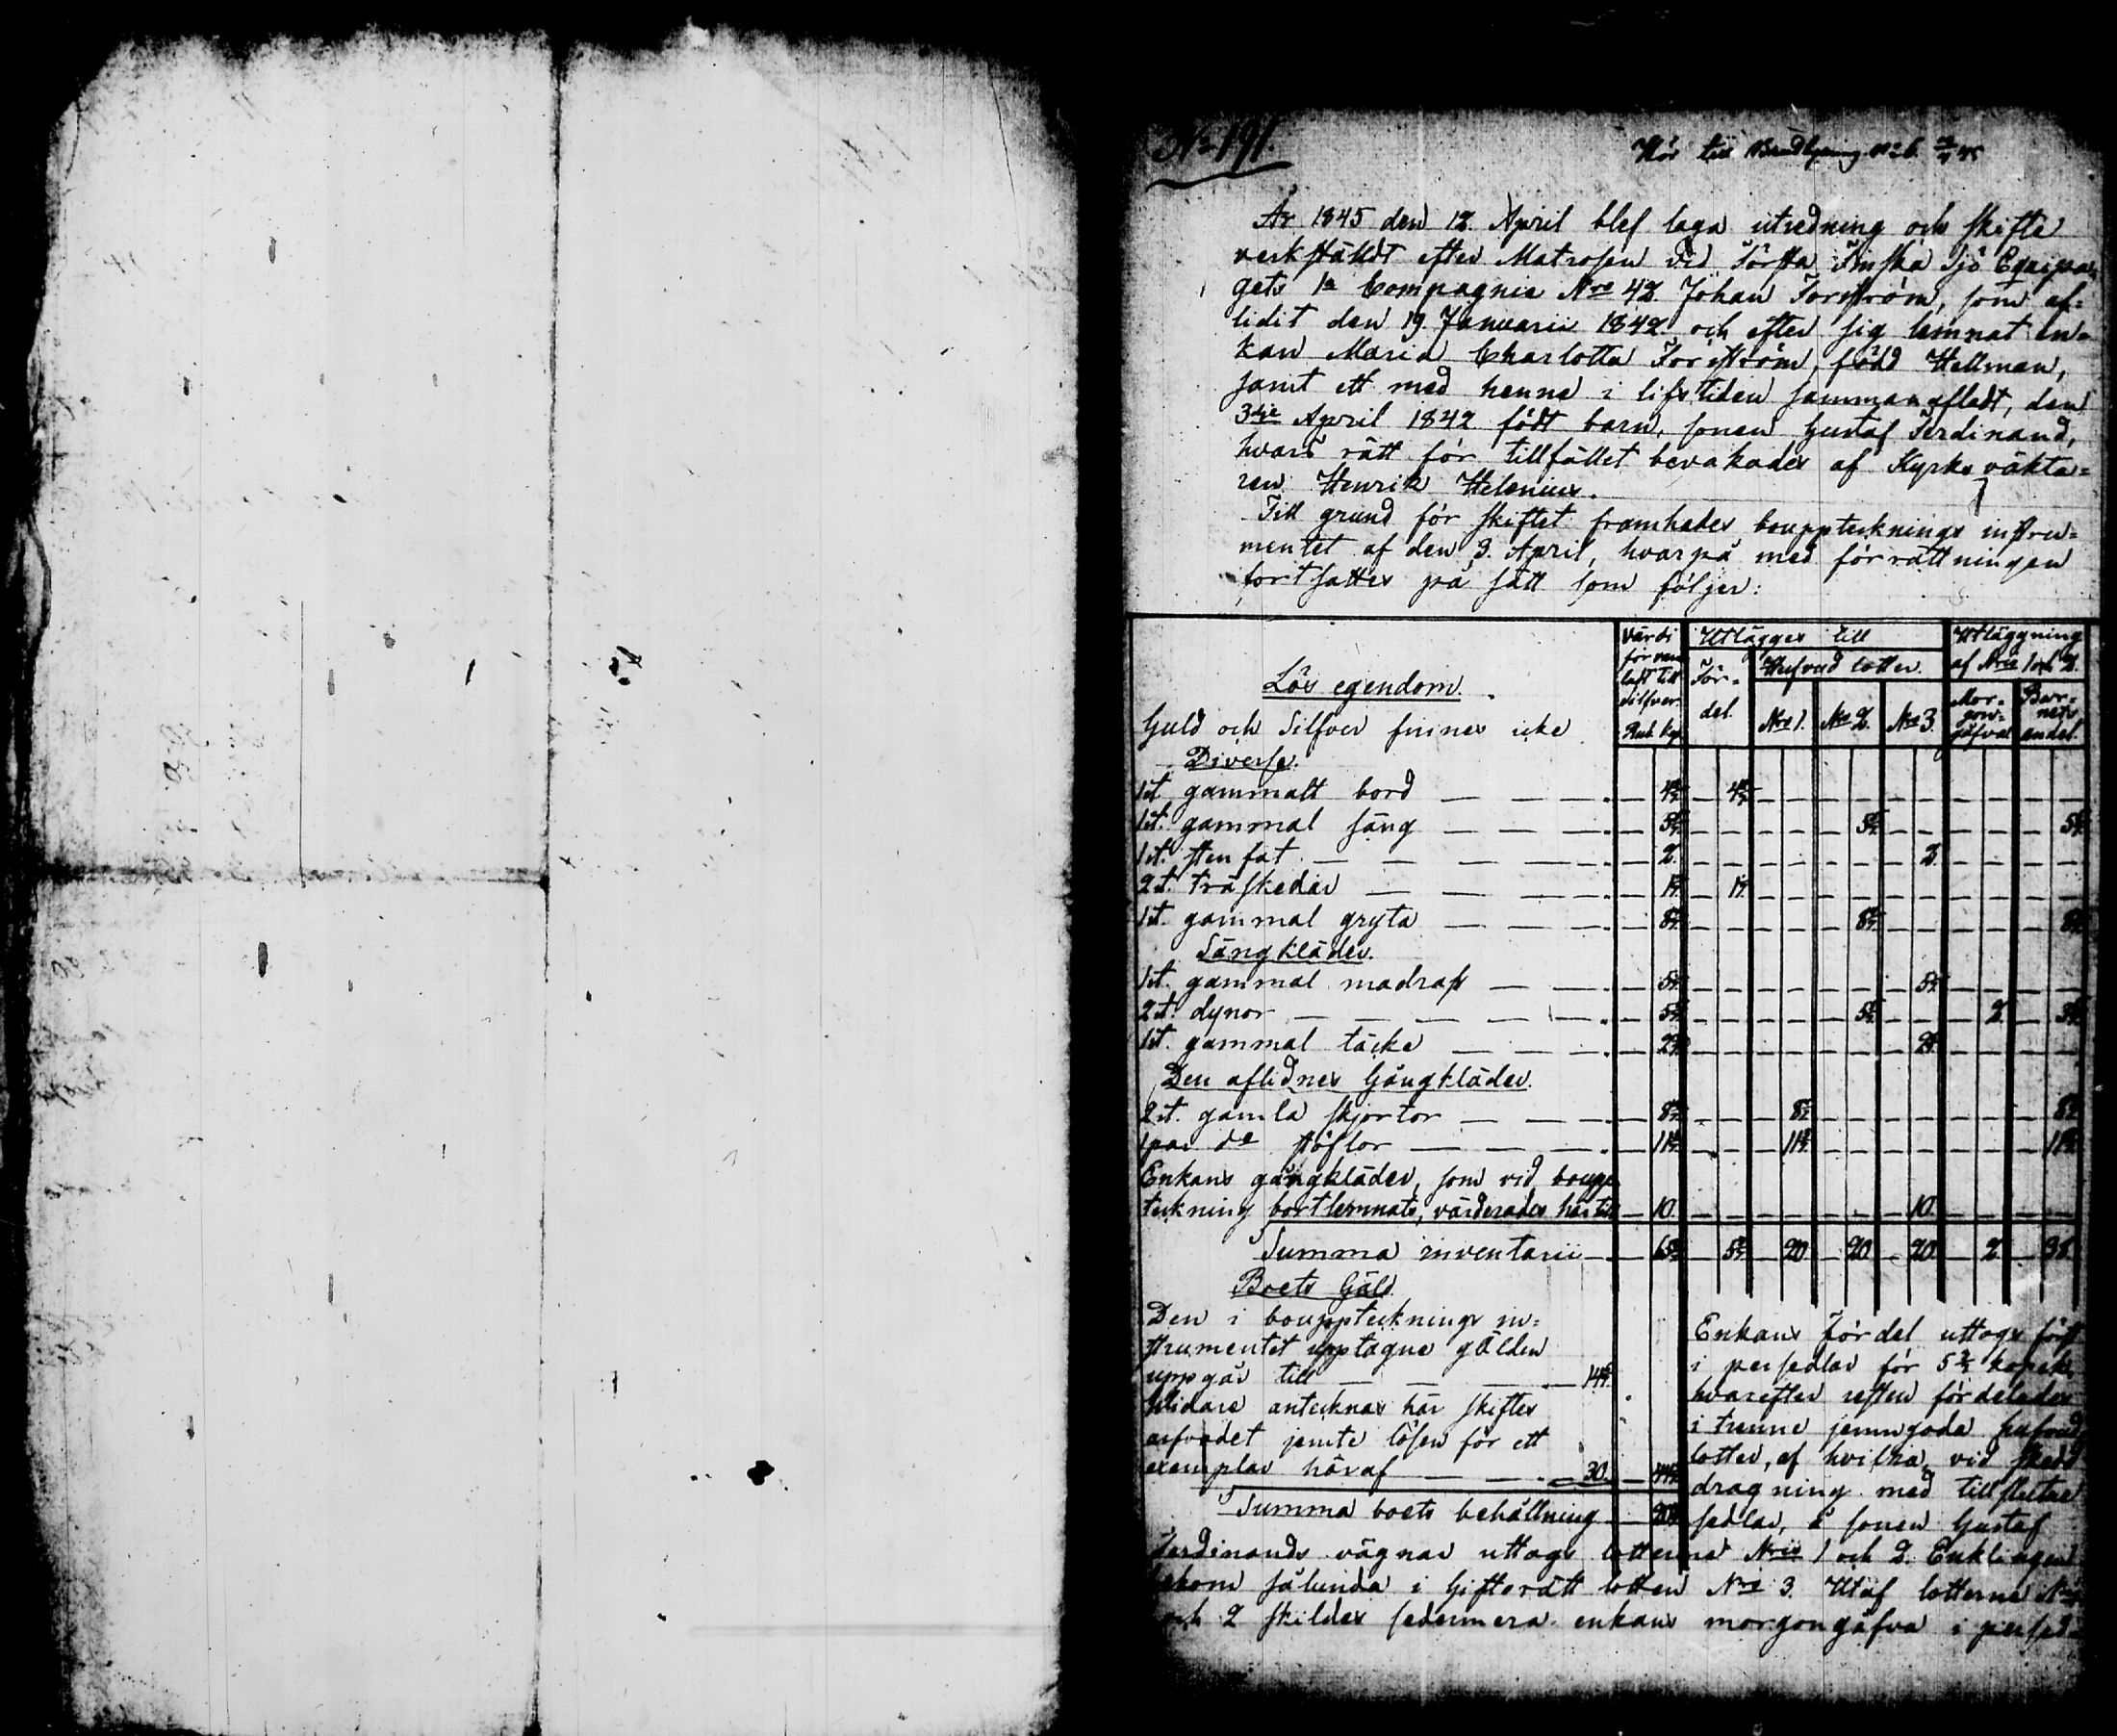 No 191.
Hör till
År 1845 den 12. April blef laga utredning och skifte
verkstäldt efter Matrosen vid Första Finska Sjö Equipa-
gets 1a Compagnie Nro 42 Johan Forsström, som af-
lidit den 19 Januarii 1842 och efter sig lemnat en-
kan Maria Charlotta Forsström, född Hellman,
samt ett med henne i lifstiden sammanafladt, den
3die April 1842 födt barn, sonen Gustaf Ferdinand,
hvars rätt för tillfället bevakades af Kyrkoväkta-
ren Henrik Helenius.
Till grund för skiftet framhades bouppteknings instru-
mentet af den 3. April, hvarpå med förrättningen
fortsattes på sätt som följer:
Lös egendom.
Värdi
till
Silfver
Rub. Kop.
Utlägges till
För-
del.
Hufvud lotter.
Nro 1. Nro 2. Nro 3.
Utläggning
af Nris 1 och 2.
Mor-
gon-
gåfva
Bar-
nets
andel.
Guld och Silfver finnes icke
Diverse.
1st. gammalt bord
1st. gammal säng
1st. stenfat 2. 2.
2st. träskedar
1st. gammal gryta
Sängkläder.
1st. gammal madrass
2st. dynor 2
1st. gammal täcke
Den aflidnes Gångkläder.
2st. gamla skjortor
1 par do stöflor
Enkans gångkläder, som vid boupp-
tekning bortlemnats, värderades här till 10. 10.
Summa inventarii 20. 20. 20. 2
Boets Gäld.
Den i bouppteknings in-
strumentet upptagne gälden
uppgår till
Vidare antecknas här skiftes
arfvodet jemte lösen för ett
exemplar häraf 30.
Summa boets behållning
Enkans fördel uttogs först
i persedlar för 5 2/7 kopek,
hvarefter resten fördelades
i trenne jemngoda hufvud
lotter, af hvilka, vid skedd
dragning med tillslutne
sedlar, å sonen Gustaf
Ferdinands vägnar uttogs lotterne Nris 1 och 2. Enklingen
bekom sålunda i Giftorätt lotten Nro 3. Utaf lotterne Nris 1
och 2 skildes sedermera enkans morgongåfva i persed-